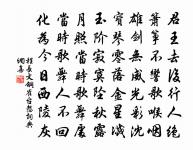 君王去後行人絕
簫箏不響歌喉咽
雄劍無威光彩沉
寶琴零落金星滅
玉階寂寞墜秋露
月照當時歌舞處
當時歌舞人不回
化為今日西陵灰
程長文銅雀台怨詞典
網